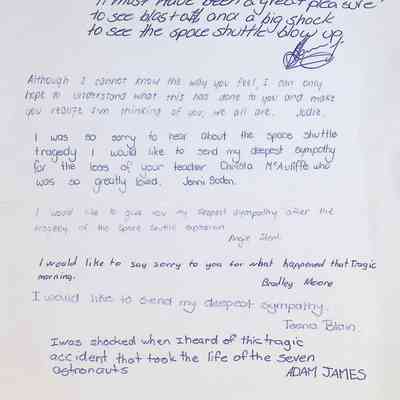 It must have been a great pleasure
to see blast off and a big shock
to see the space shuttle blow up.
Although I cannot know the way you feel, I can only
hope to understand what this has done to you and make
you realize I'm thinking of you, we all are. Jodie.
I was so sorry to hear about the space shuttle
tragedy I would like to send my deepest sympathy
for the loss of your teacher Christa McAuliffe who
was so greatly loved. Jenni Boden.
I would like to give you my deepest sympathy after the
tragedy of the Space Shuttle explosion
Angie
I would like to say sorry to you for what happened that Tragic
morning.
Bradley Moore
I would like to send my deepest sympathy.
Blain
I was shocked when I heard of this tragic
accident that took the life of the seven
astronauts ADAM JAMES